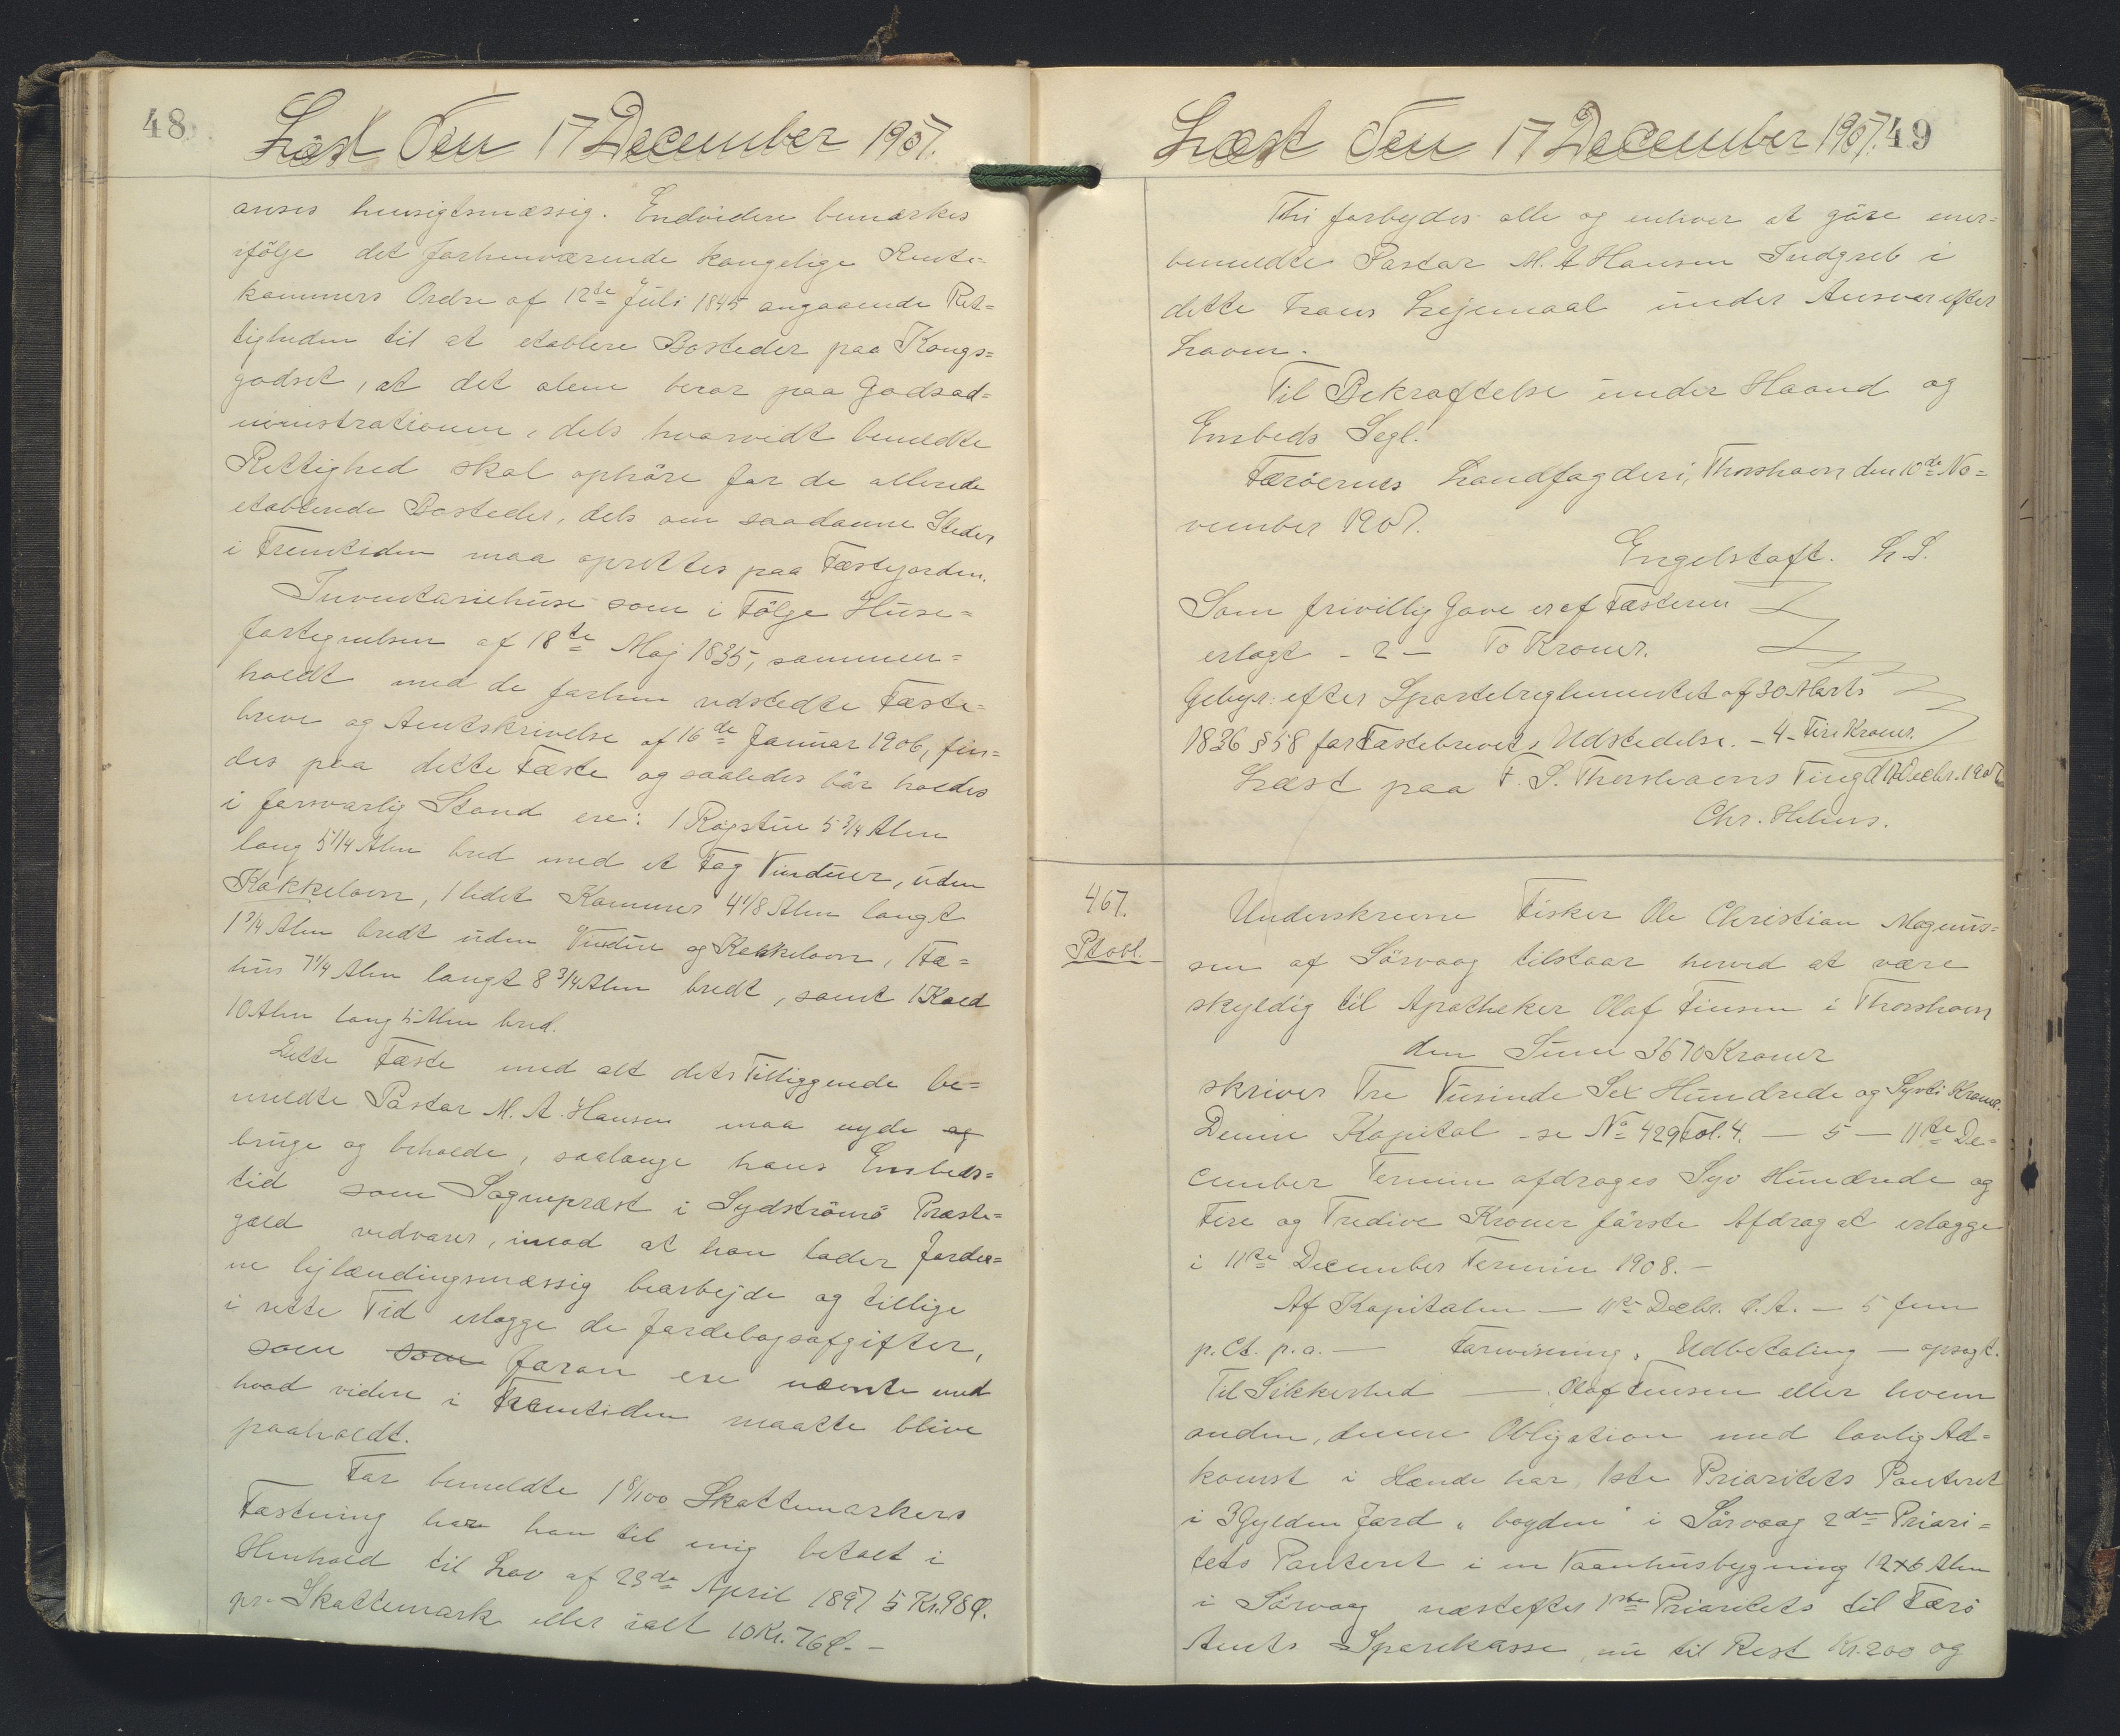 48
Læst Den 17 December 1907.
anses hensigtsmæssig. Endvidere bemærkes
ifölge det forhenværende kongelige Rente-
kammers Ordre af 12te Juli 1845 angaaende Ret=
tigheden til at etablere Bosteder paa Kongs=
godset, at det alene beror paa Godsad=
ministrationen, dels hvorvidt bemeldte
Rettighed skal ophöre for de allerede
etablerede Bosteder, dels om saadanne Steder
i Fremtiden maa oprettes paa Fæstejorden.
Inventariehuse som i Fölge Huse=
fortegnelsen af 18te Maj 1835, sammen=
holdt med de forhen udstedte Fæste=
breve og Amtskrivelse af 16de Januar 1906, fin=
des paa dette Fæste og saaledes bör holdes
i forsvarlig Stand ere: 1 Rögstue 5 3/4 Alen
lang 5 1/4 Alen bred med et Fag Vinduer, uden
Kakkelovn, 1 lidet Kammer 4 1/8 Alen langt
1 3/4 Alen bredt uden Vindue og Kakkelovn, 1 Fæ=
hus 7 1/4 Alen langt 8 3/4 Alen bredt, samt 1 Kold
10 Alen lang 5 Alen bred.
Dette Fæste med alt dets Tilliggende be=
meldte Pastor M. A. Hansen maa nyde og
bruge og beholde, saalænge hans Embeds=
tid som Sognepræst i Sydströmö Præste=
gæld vedvarer, imod at han lader Jorder=
ne lejlændingsmæssig bearbejde og tillige
i rette Tid erlægge de Jordebogsafgifter,
som som foran ere nævnte med
hvad videre i Fremtiden maatte blive
paaholdt.
For bemeldte 1 8/100 Skattemarkers
Fæstning har han til mig betalt i
Henhold til Lov af 23de April 1897 5 Kr. 98 Ø.
pr. Skattemark eller ialt 10 Kr. 76 Ø. –
Læst Den 17 December 1907. 49
Thi forbydes alle og enhver at göre over=
bemeldte Pastor M. A Hansen Indgreb i
dette hans Lejemaal under Ansvar efter
Loven.
Til Bekræftelse under Haand og
Embeds Segl.
Færöernes Landfogderi, Thorshavn den 10de No=
vember 1907.
Engelstoft. L. S.
Som frivillig Gave er af Fæsteren
erlagt – 2 – To Kroner.
Gebyr: efter Sportelreglementet af 30 Marts
1836 § 58 for Fæstebrevets Udstedelse. – 4 – Fire Kroner.
Læst paa F. S. Thorshavns Ting d 17 Decbr. 1907
Chr. Helms.
467.
Ptobl.
Underskrevne Fisker Ole Christian Magnus=
sen af Sörvaag tilstaar herved at være
skyldig til Apotheker Olaf Finsen i Thorshavn
den Sum 3670 Kroner
skriver Tre Tusinde Sex Hundrede og Syvti Kroner.
Denne Kapital – se No 429 Fol. 4. – 5 – 11te De=
cember Termin afdrages Syv Hundrede og
Fire og Tredive Kroner förste Afdrag at erlægge
i 11te December Termin 1908. –
Af Kapitalen – 11te Decbr. d. A. – 5 fem
p. Ct. p. a. – Forrentning, Udbetaling – opsagt.
Til Sikkerhed – Olaf Finsen eller hvem
anden, denne Obligation med lovlig Ad=
komst i Hænde har, 1ste Prioritets Panteret
i 3 Gylden Jord „ bøyden “ i Sörvaag 2den Priori=
tets Panteret i en Vaanhusbygning 12 x 6 Alen
i Sörvaag næstefter 1ste Prioritets til Færö
Amts Sparekasse, nu til Rest Kr. 200 og